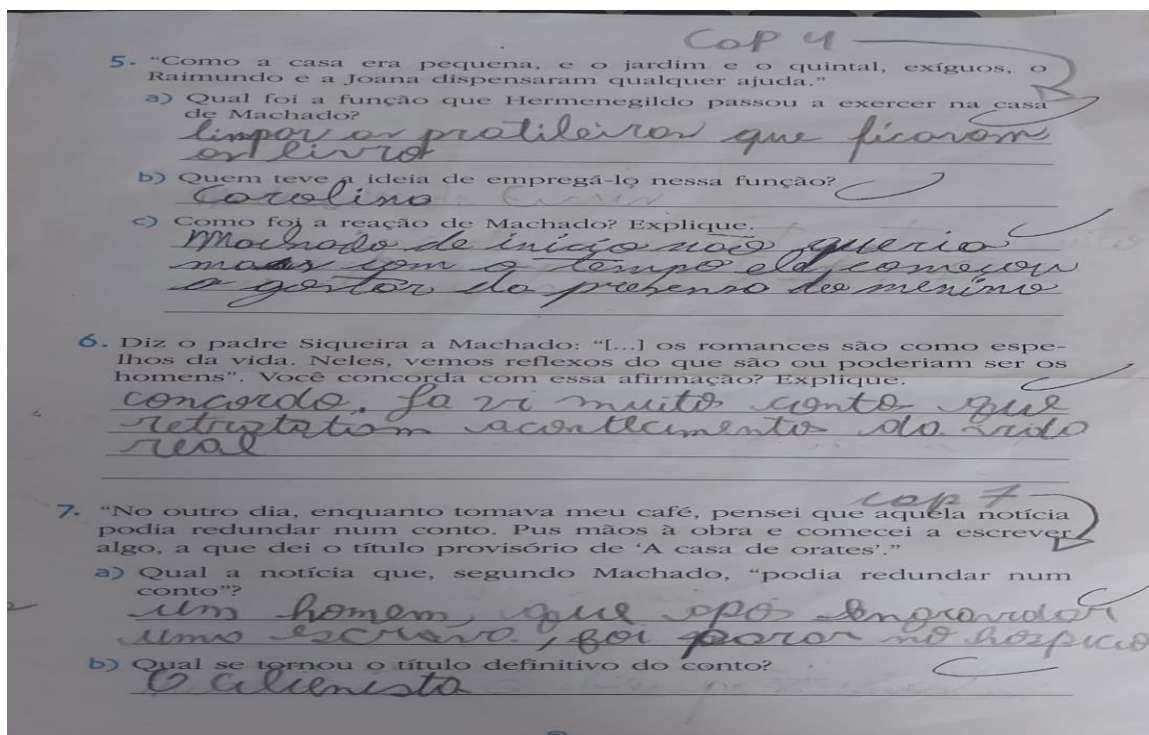 Cap 4
5. “Como a casa era pequena, e o jardim e o quintal, exíguos, o
Raimundo e a Joana dispensaram qualquer ajuda.”
a) Qual foi a função que Hermenegildo passou a exercer na casa
de Machado?
limpar as pratileiras que ficavam
os livros
b) Quem teve a ideia de empregá-lo nessa função?
Carolina
c) Como foi a reação de Machado? Explique.
Machado de inicio não queria
mas com o tempo ele começou
a gostar da presensa do menino
6. Diz o padre Siqueira a Machado: “[...] os romances são como espe-
lhos da vida. Neles, vemos reflexos do que são ou poderiam ser os
homens”. Você concorda com essa afirmação? Explique.
concordo. Ja vi muito conto que
acontecimento da vida
real
cap 7
7. “No outro dia, enquanto tomava meu café, pensei que aquela notícia
podia redundar num conto. Pus mãos à obra e comecei a escrever
algo, a que dei o título provisório de ‘A casa de orates’.”
a) Qual a notícia que, segundo Machado, “podia redundar num
conto”?
um homem, que após engravidar
uma escrava, foi parar no hospicio
b) Qual se tornou o título definitivo do conto?
O alienista